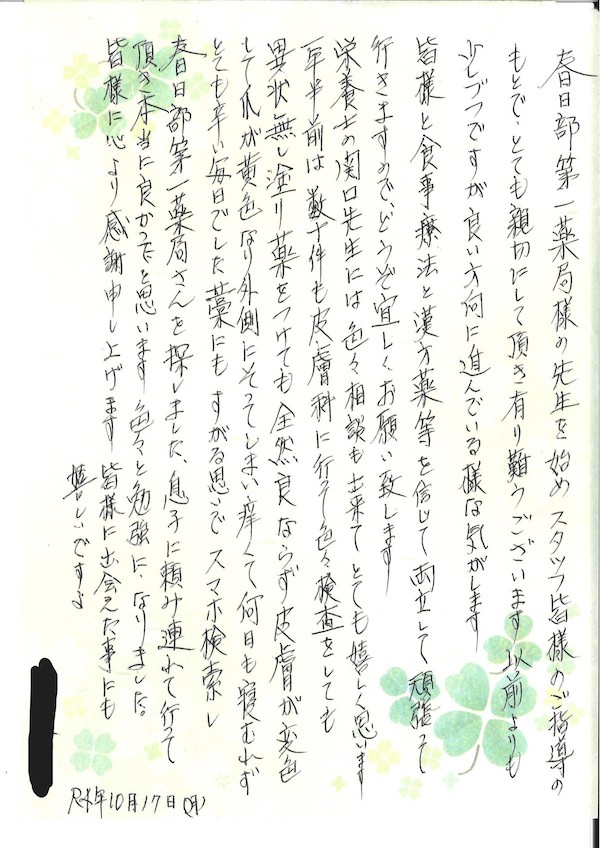 春日部第一薬局様の先生を始めスタッフ皆様のご指導の
もとで、とても親切にして頂き有り難うございます 以前よりも
少しづつですが良い方向に進んでいる様な気がします
皆様と食事療法と漢方薬等を信じて両立して頑張って
行きますので、どうぞ宜しくお願い致します
栄養士の関口先生には色々相談も出来てとても嬉しく思います
一年半前は数十件も皮膚科に行って色々検査をしても
異状無し塗り薬をつけても全然良ならず皮膚が変色
して爪が黄色なり外側にそってしまい痒くて何日も寝むれず
とても辛い毎日でした 藁にもすがる思いでスマホ検索し
春日部第一薬局さんを探しました、息子に頼み連れて行って
頂き本当に良かったと思います 色々と勉強に、なりました。
皆様に心より感謝申し上げます 皆様に出会えた事にも
嬉しいですよ
年10月17日(月)